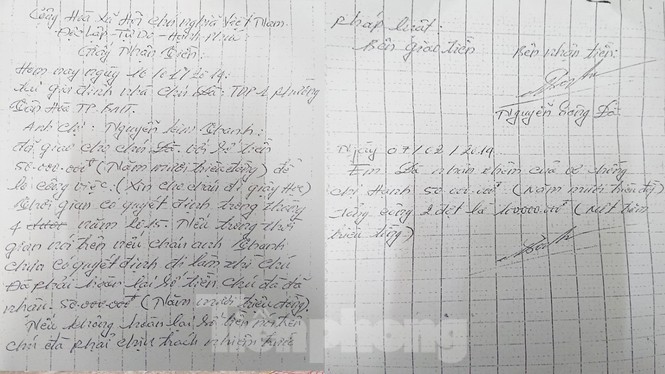 Cộng Hòa Xã Hội Chủ nghĩa Việt Nam.
Độc Lập - Tự Do - Hạnh Phúc
Giấy Nhận Tiền:
Hôm nay ngày 16/10/2014:
tại gia đình nhà chú Đà: TDP 4 phường
TP. BMT.
Anh chị: Nguyễn Kim Thanh:
đã giao cho chú Đà với số tiền
50.000.000đ (Năm mươi triệu đồng) để
lo công việc. (Xin cho cháu đi giấy
thời gian có quyết định trong tháng
4 năm 2015. Nếu trong thời
gian nói trên nếu cháu anh Thanh
chưa có quyết định đi làm thì chú
Đà phải hoàn lại số tiền chú đã đã
nhận. 50.000.000đ (Năm mươi triệu đồng).
Nếu không hoàn lại số tiền nói trên
chú đà phải chịu trách nhiệm trước
pháp luật:
Bên giao tiền
Bên nhận tiền:
Nguyễn Hồng Đà
Ngày 07/02/2014
Em Đà nhận thêm của vợ chồng
chị Hạnh 50.000.000đ (Năm mươi triệu đồng)
Tổng cộng 2 đợt là 100.000.000đ (Một trăm
triệu đồng)
tienphong